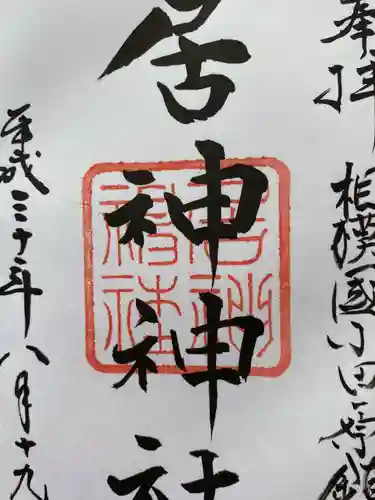 奉拝 相模國小田原鎮
居神神社
居神
神社
平成三十年八月十九